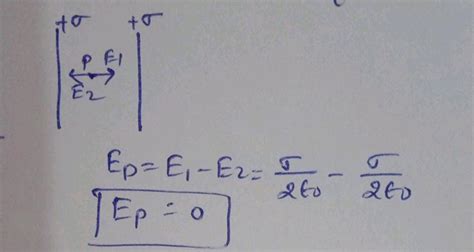 +σ +σ
P E1
E2
Ep = E1 - E2 = σ/2ϵ0 - σ/2ϵ0
Ep = 0